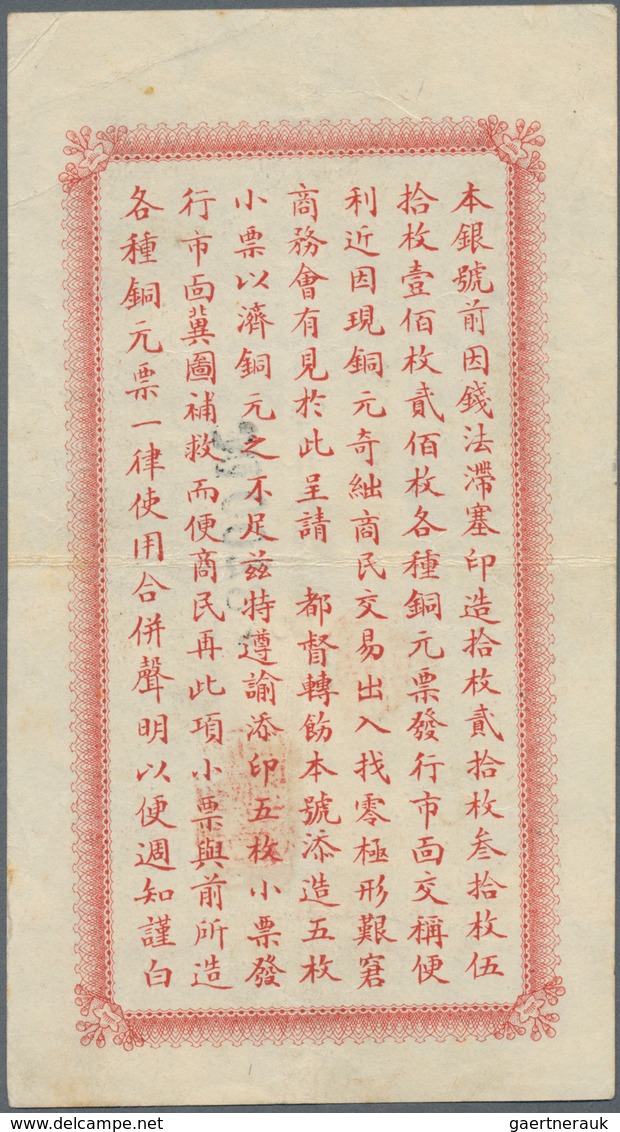 本銀號前因錢法滯塞印造拾枚貳拾枚叁拾枚伍
拾枚壹佰枚貳佰枚各種銅元票發行市面交稱便
利近因現銅元奇絀商民交易出入找零極形艱窘
商務會有見於此呈請 都督轉飭本號添造五枚
小票以濟銅元之不足兹特遵諭添印五枚小票發
行市面冀圖補救而便商民再此項小票與前所造
各種銅元票一律使用合併聲明以便週知謹白
www.delcampe.net
gaertnerauk